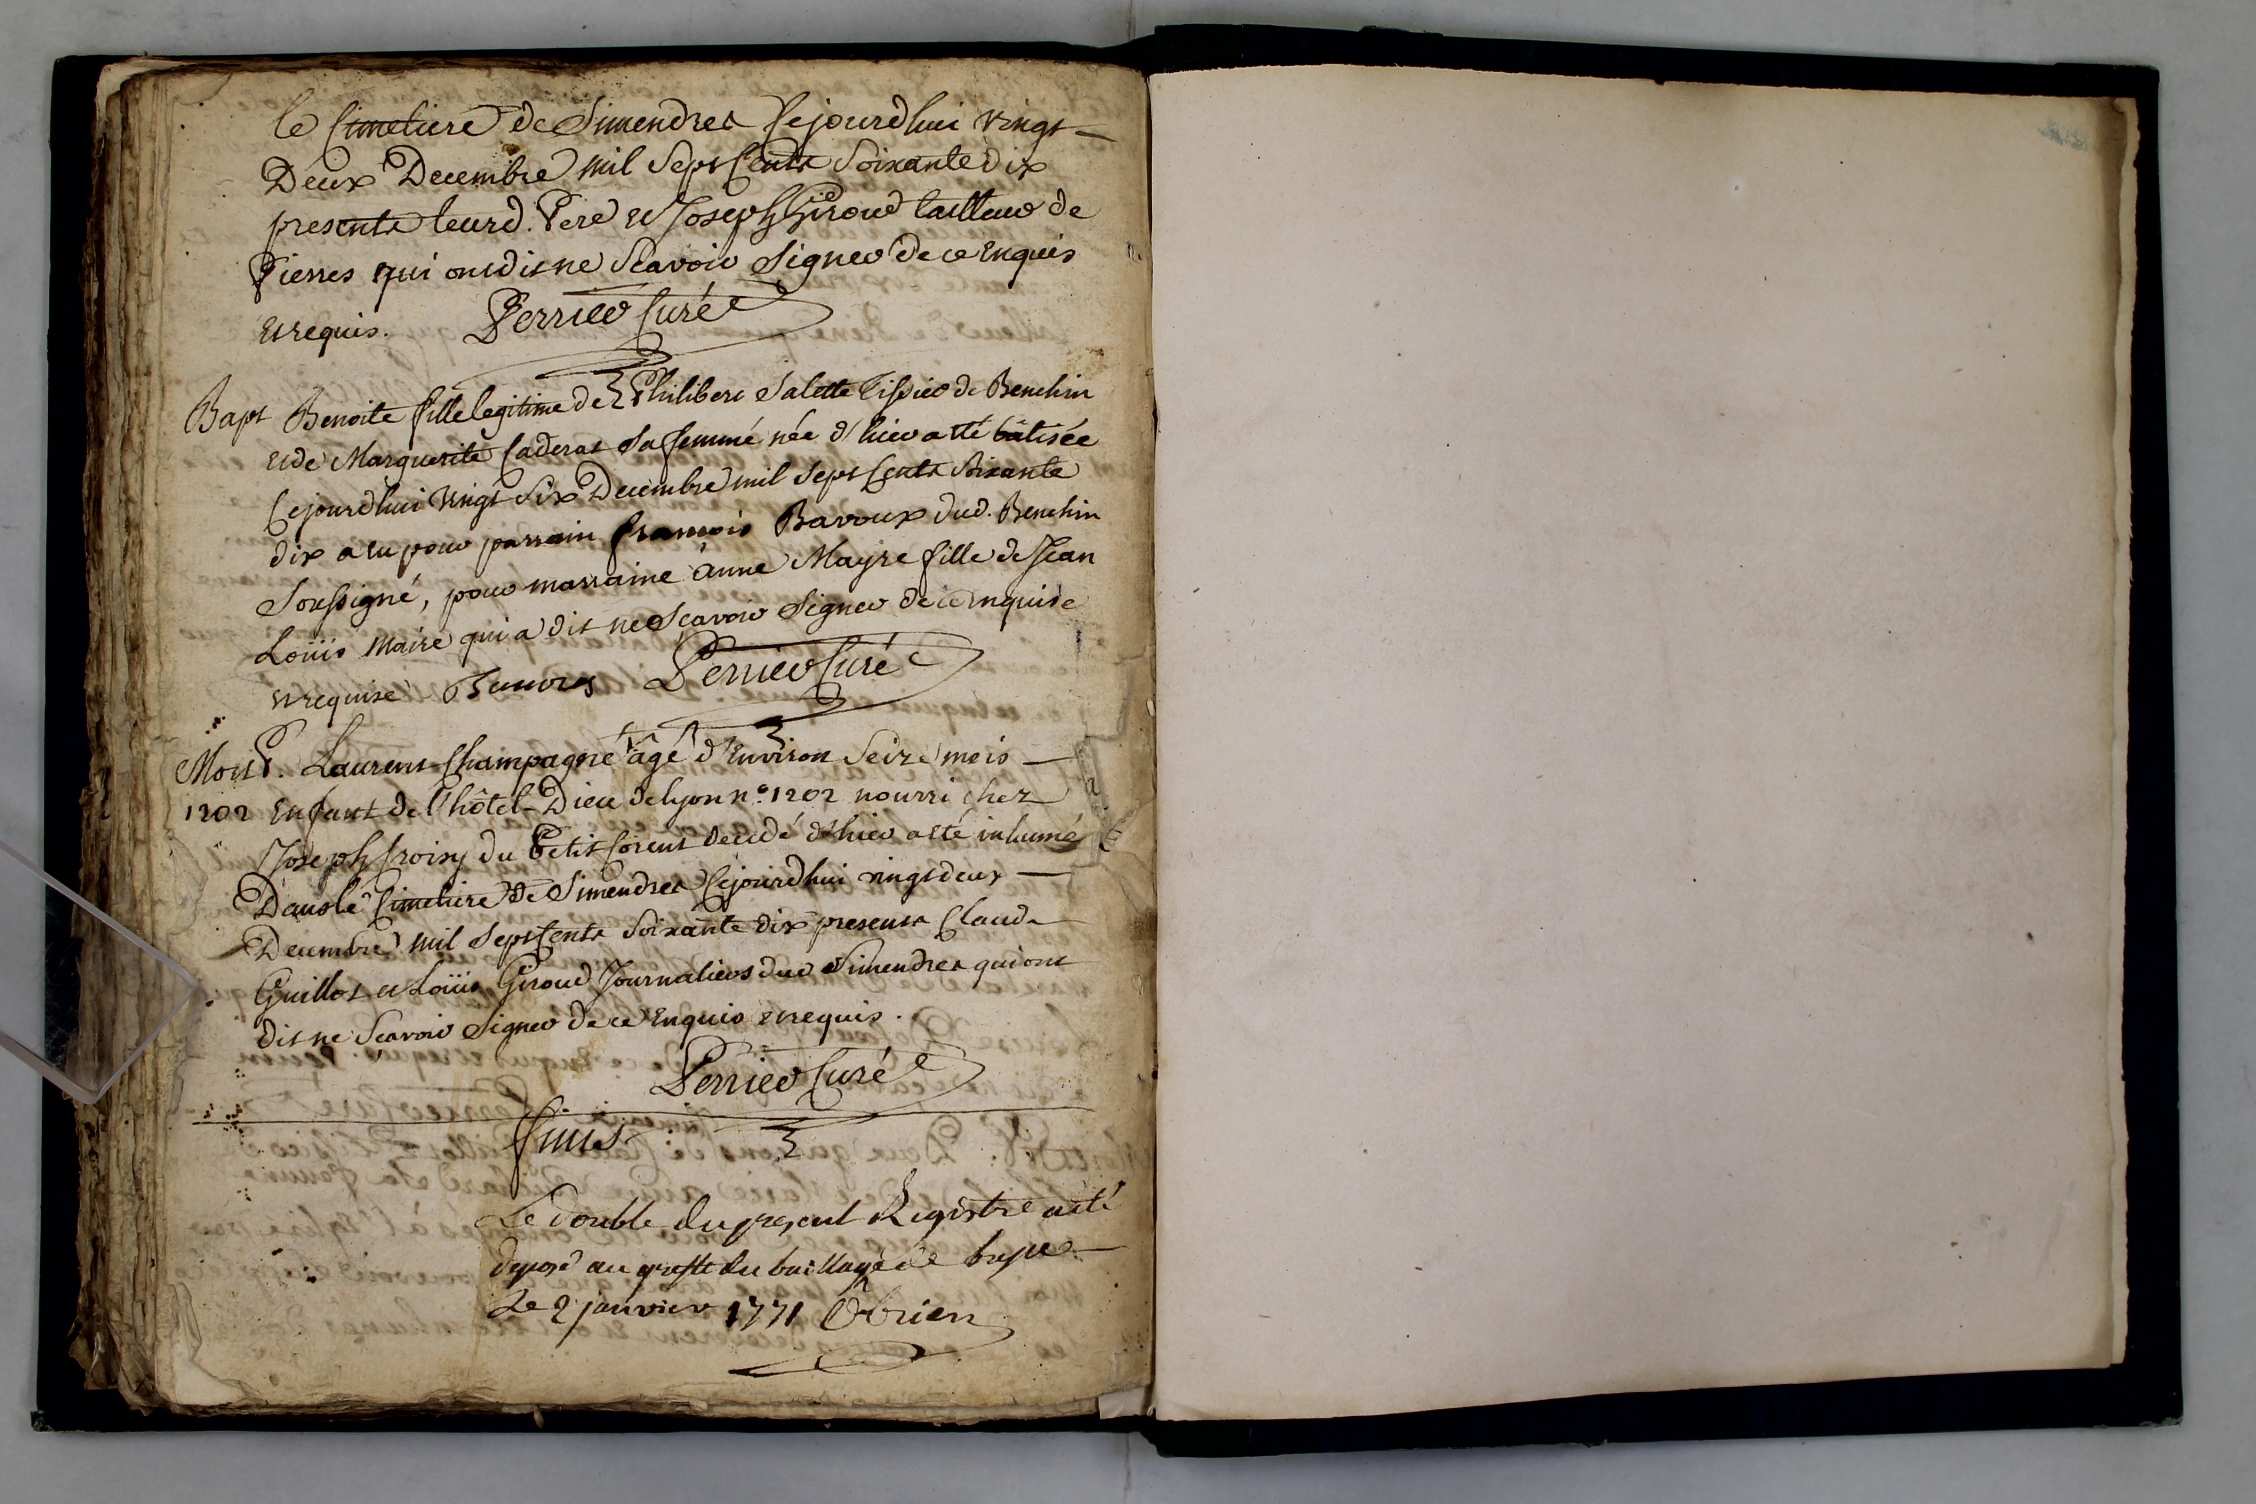 le Cimetiere de Simendres Cejourdhui vingt
Deux Decembre mil Sept Cents Soixante dix
presents leurd. Pere et Joseph Giroud tailleur de
Pierres qui ont dit ne Scavoir Signer de ce Enquis
et requis. Perrier Curé
Bapt Benoite fille legitime de Philibert Salette Tissier de Benchin
et de Marguerite Caderat Sa femme née d'hier a été bâtisée
Cejourdhui vingt Six Decembre mil Sept Cents Soixante
dix a eu pour parrain françois Bavoux dud. Benchin
Soussigné, pour marraine anne Mayre fille de Jean
Loüis Maire qui a dit ne Scavoir Signer de ce enquise
et requise Bauvoz Perrier Curé
Mort P. Laurent Champagne âgé d'Environ Seize mois
1202 Enfant de l'hôtel-Dieu de lyon n.º 1202 nourri chez
Joseph Croisy du Petit Corent decedé d'hier a été inhumé
Dans le Cimetiere de Simendres Cejourdhui vingt deux
Decembre mil Sept Cents Soixante dix presents Claude
Guillot et Loüis Giroud Journaliers dud Simendres qui ont
dit ne Scavoir Signer de ce Enquis et requis.
Perrier Curé
finis
Le double du present Registre a été
deposé au greffe du baillage de bresse
Le 2 janvier 1771 Obrien